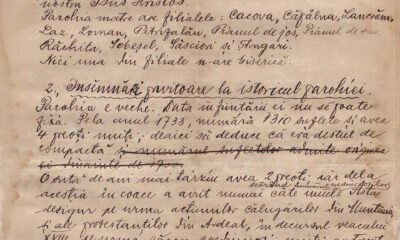 nostru Isus Hristos.
Parohia matre are filialele: Cacova, Căpâlna, Lancrăm,
Laz, Loman, Petrifalău, Pianul de jos, Pianul de sus,
Răchita, Sebeșel, Săsciori și Ungări.
Nici una din filiale n-are biserică.
2. Însemnări privitoare la istoricul parohiei.
Parohia e veche. Data înființării ei nu se poate
fixa. Pela anul 1733, numără 1310 suflete și avea
4 preoți uniți; deaici să deduce că era destul de
compactă și numărul sufletelor admite originea
și înainte de 1700.
O sută de ani mai târziu avea 2 preoți, iar dela
aceștia în coace a avut numai câte unul.
desigur pe urma acțiunilor călugărilor din Muntenia
și ale protestanților din Ardeal, în decursul veacului
XVIII.